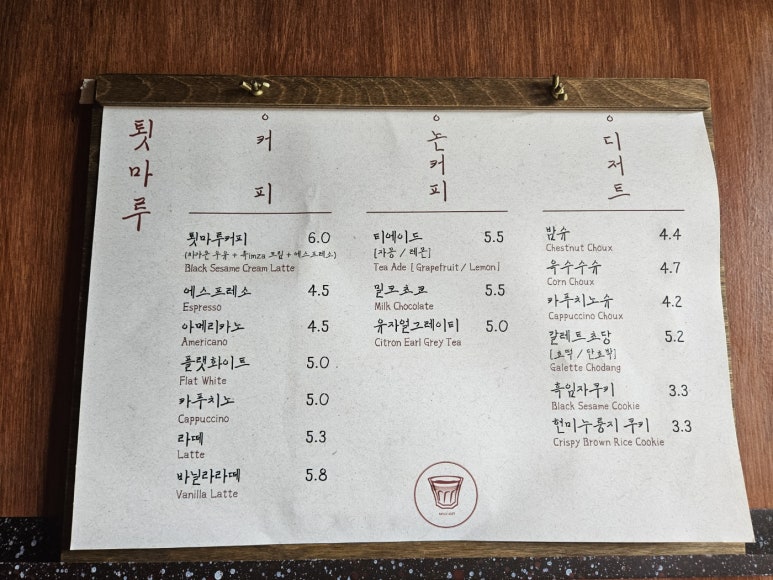 툇마루
커피
툇마루커피 6.0
Black Sesame Cream Latte
에스프레소 4.5
Espresso
아메리카노 4.5
Americano
플랫화이트 5.0
Flat White
카푸치노 5.0
Cappuccino
라떼 5.3
Latte
바닐라라떼 5.8
Vanilla Latte
논커피
티에이드 5.5
[자몽 / 레몬]
Tea Ade [Grapefruit / Lemon]
밀크초코 5.5
Milk Chocolate
유자얼그레이티 5.0
Citron Earl Grey Tea
디저트
밤슈 4.4
Chestnut Choux
옥수수슈 4.7
Corn Choux
카푸치노슈 4.2
Cappuccino Choux
갈레트초당 5.2
Galette Chodang
흑임자쿠키 3.3
Black Sesame Cookie
현미누룽지 쿠키 3.3
Crispy Brown Rice Cookie